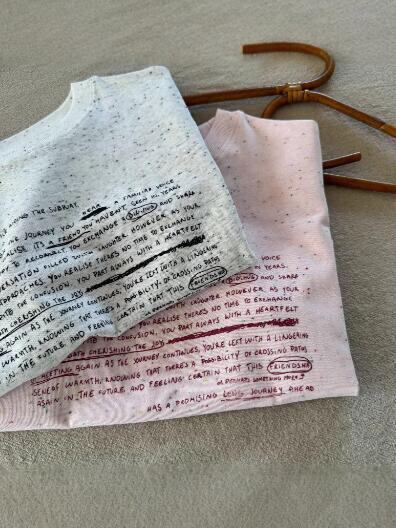 ING THE SUBWAY, HEAR A FAMILIAR VOICE
THE JOURNEY YOU
ALLER. ITS A FRIEND YOU HAVEN'T SEEN IN YEARS.
TO ACCOMPANY YOU EXCHANGE DIALOGUE AND SHARE
ERSATION FILLED WITH LAUGHTER. HOWEVER AS YOUR
APPROACHES, YOU REALISE THERE'S NO TIME TO EXCHANGE
DESPITE THE CONFUSION, YOU PART ALWAYS WITH A HEARTFELT
BOTH CHERISHING THE JOY
MEETING AGAIN AS THE JOURNEY CONTINUES, YOU'RE LEFT WITH A LINGERING
OF WARMTH, KNOWING THAT THERE'S A POSSIBILITY OF CROSSING PATHS
IN THE FUTURE AND FEELING CERTAIN THAT THIS FRIENDSHIP
VOICE
IN YEARS.
DIALOGUE AND SHARE
LAUGHTER. HOWEVER AS YOUR
YOU REALISE THERE'S NO TIME TO EXCHANGE
THE CONFUSION, YOU PART ALWAYS WITH A HEARTFELT
BOTH CHERISHING THE JOY
MEETING AGAIN AS THE JOURNEY CONTINUES, YOU'RE LEFT WITH A LINGERING
SENSE OF WARMTH, KNOWING THAT THERE'S A POSSIBILITY OF CROSSING PATHS
AGAIN IN THE FUTURE AND FEELING CERTAIN THAT THIS FRIENDSHIP
OR PERHAPS SOMETHING MORE?
HAS A PROMISING LONG JOURNEY AHEAD